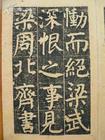 慟而絕梁武
深恨之事見
梁周北齊書